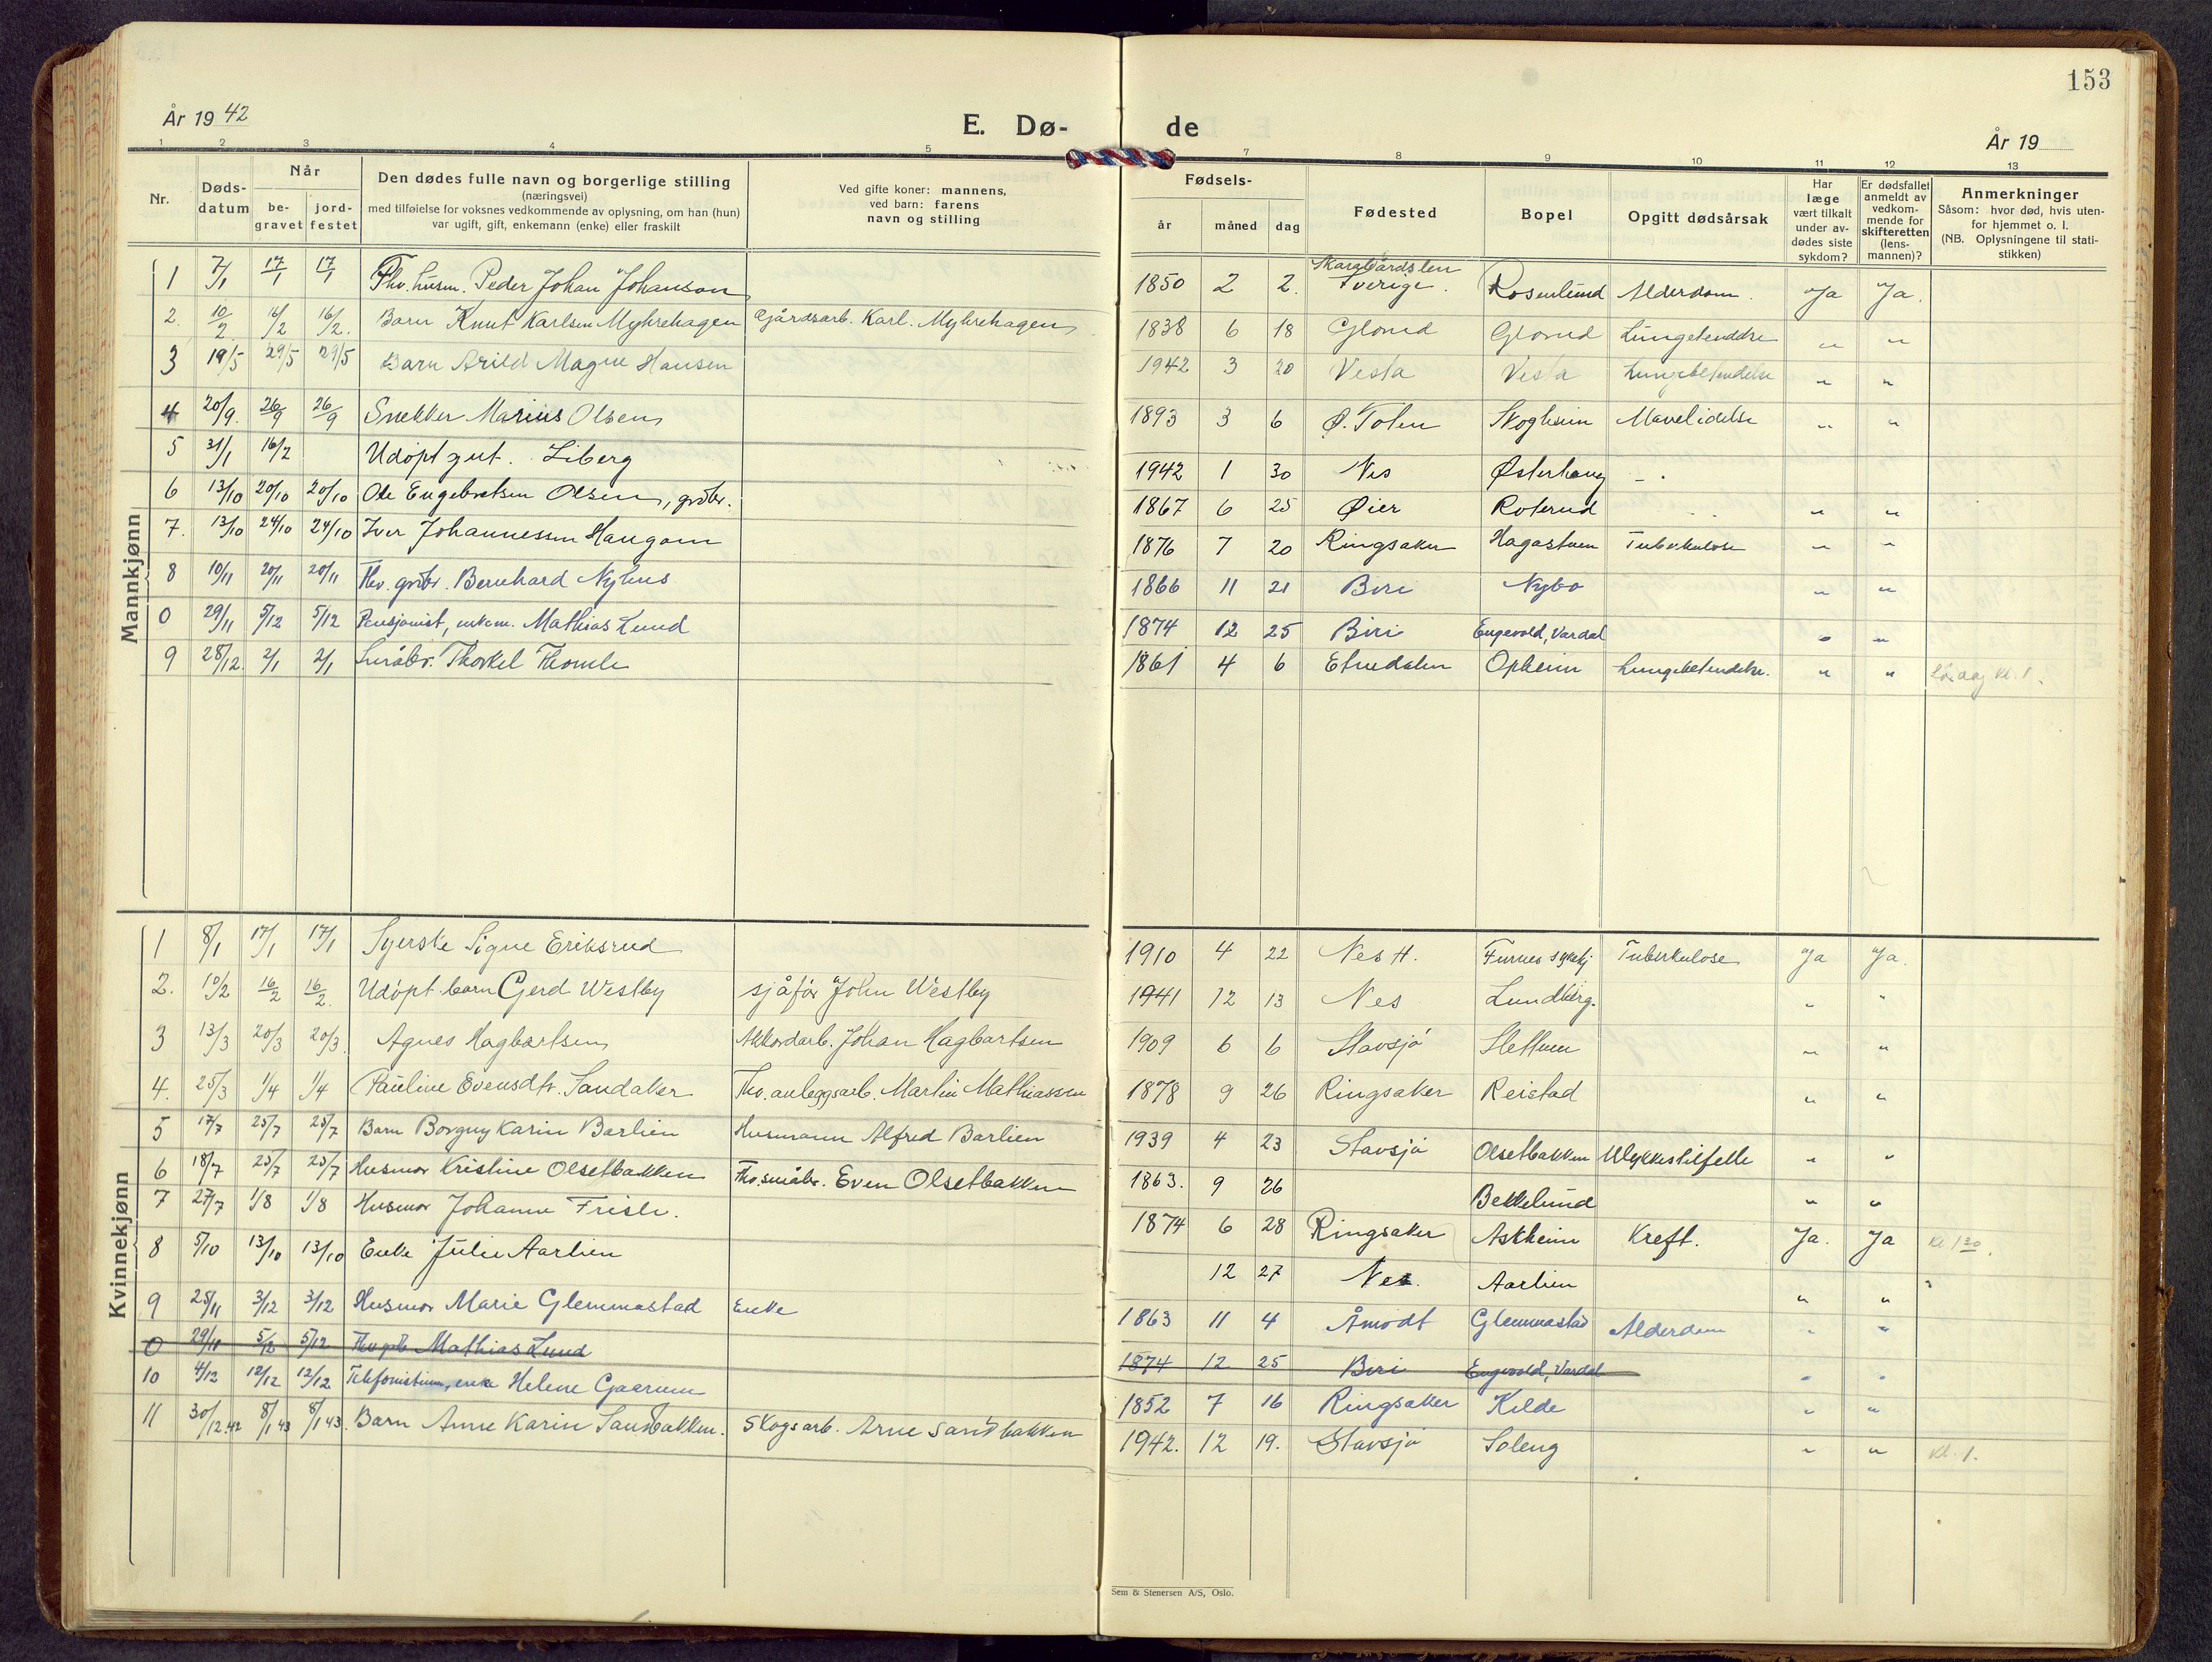 153
År 19 42
E. Dø-
de
År 19
1 2 3 4 5 7 8 9 10 11 12 13
Nr.
Døds-
datum
Når
be-
gravet
jord-
festet
Den dødes fulle navn og borgerlige stilling
(næringsvei)
med tilføielse for voksnes vedkommende av oplysning, om han (hun)
var ugift, gift, enkemann (enke) eller fraskilt
Ved gifte koner: mannens,
ved barn: farens
navn og stilling
Fødsels-
år måned dag
Fødested
Bopel
Opgitt dødsårsak
Har
læge
vært tilkalt
under av-
dødes siste
sykdom?
Er dødsfallet
anmeldt av
vedkom-
mende for
skifteretten
(lens-
mannen)?
Anmerkninger
Såsom: hvor død, hvis uten-
for hjemmet o. l.
(NB. Oplysningene til stati-
stikken)
Mannkjønn
1 7/1 17/1 17/1 Fhv. husm. Peder Johan Johanson 1850 2 2. Skaraborgslen Sverige. Rosenlund Alderdom. Ja Ja.
2. 10/2 16/2 16/2. Barn Knut Karlsen Myhrehagen Gårdsarb. Karl. Myhrehagen 1838 6 18 Glomd Glomd " "
3 19/5 29/5 29/5 Barn Arild Magne Hansen 1942 3 20 Vesta Vesta Lungebetendelse " "
4 20/9. 26/9 26/9 Snekker Marius Olsen 1893 3 6 Ø. Toten Skogheim Mavelidelse " "
5 31/1 16/2 Udøpt gut. Liberg 1942 1 30 Nes Østerhaug - .
6 13/10 20/10 20/10 Ole Engebretsen Olsen, grdbr. 1867 6 25 Øier Roterud " "
7. 13/10 24/10 24/10 Iver Johannessen Haugom 1876 7 20 Ringsaker Hagastuen Tuberkulose " "
8 10/11 20/11 20/11 Fhv. grdbr. Bernhard Nyhus 1866 11 21 Biri Nybo " "
0 29/11 5/12 5/12 Pensjonist, enkem. Mathias Lund 1874 12 25 Biri Engevold, Vardal " "
9 28/12. 2/1 2/1 Småbr. Thorkel Thomle 1861 4 6 Etnedalen Opheim Lungebetendelse. " " Lørdag kl. 1.
Kvinnekjønn
1 8/1 17/1 17/1 Syerske Signe Eriksrud 1910 4 22 Nes H. Furnes sykehj Tuberkulose Ja Ja.
2. 10/2 16/2 16/2. Udøpt barn Gerd Westby sjåfør John Westby 1941 12 13 Nes Lundberg. " "
3 13/3 20/3 20/3. Agnes Hagbartsen Akkordarb. Johan Hagbartsen 1909 6 6 Stavsjø Slettum " "
4. 25/3 1/4 1/4 Pauline Evensdtr. Sandaker Fhv. anleggsarb. Martin Mathiassen 1878 9 26 Ringsaker Reistad " "
5 17/7 25/7 25/7 Barn Borgny Karin Barlien Husmann Alfred Barlien 1939 4 23 Stavsjø Olsetbakken Ulykkestilfelle " "
6 18/7 25/7 25/7 Husmor Kristine Olsetbakken Fhv. småbr. Even Olsetbakken 1863. 9 26 Bekkelund " "
7 27/7 1/8 1/8 Husmor Johanne Frisli. 1874 6 28 Ringsaker Askheim Kreft. Ja. Ja Kl. 1 30.
8 5/10 13/10 13/10 Enke Julie Aarlien 12 27 Nes. Aarlien " " "
9 25/11 3/12 3/12 Husmor Marie Glemmastad Enke 1863 11 4 Åmodt Glemmastad Alderdom " "
0 29/11 5/12 5/12 Mathias Lund 1874 12 25 Biri Engevold, Vardal " "
10 4/12 12/12 12/12 Telefonistinne, enke Helene Gaarum 1852 7 16 Ringsaker Kilde " "
11 30/12.42 8/1 43 8/1 43. Barn Anne Karin Sandbakken. Skogsarb. Arne Sandbakken 1942. 12 19. Stavsjø Soleng " " Kl. 1.
Sem & Stenersen A/S, Oslo.